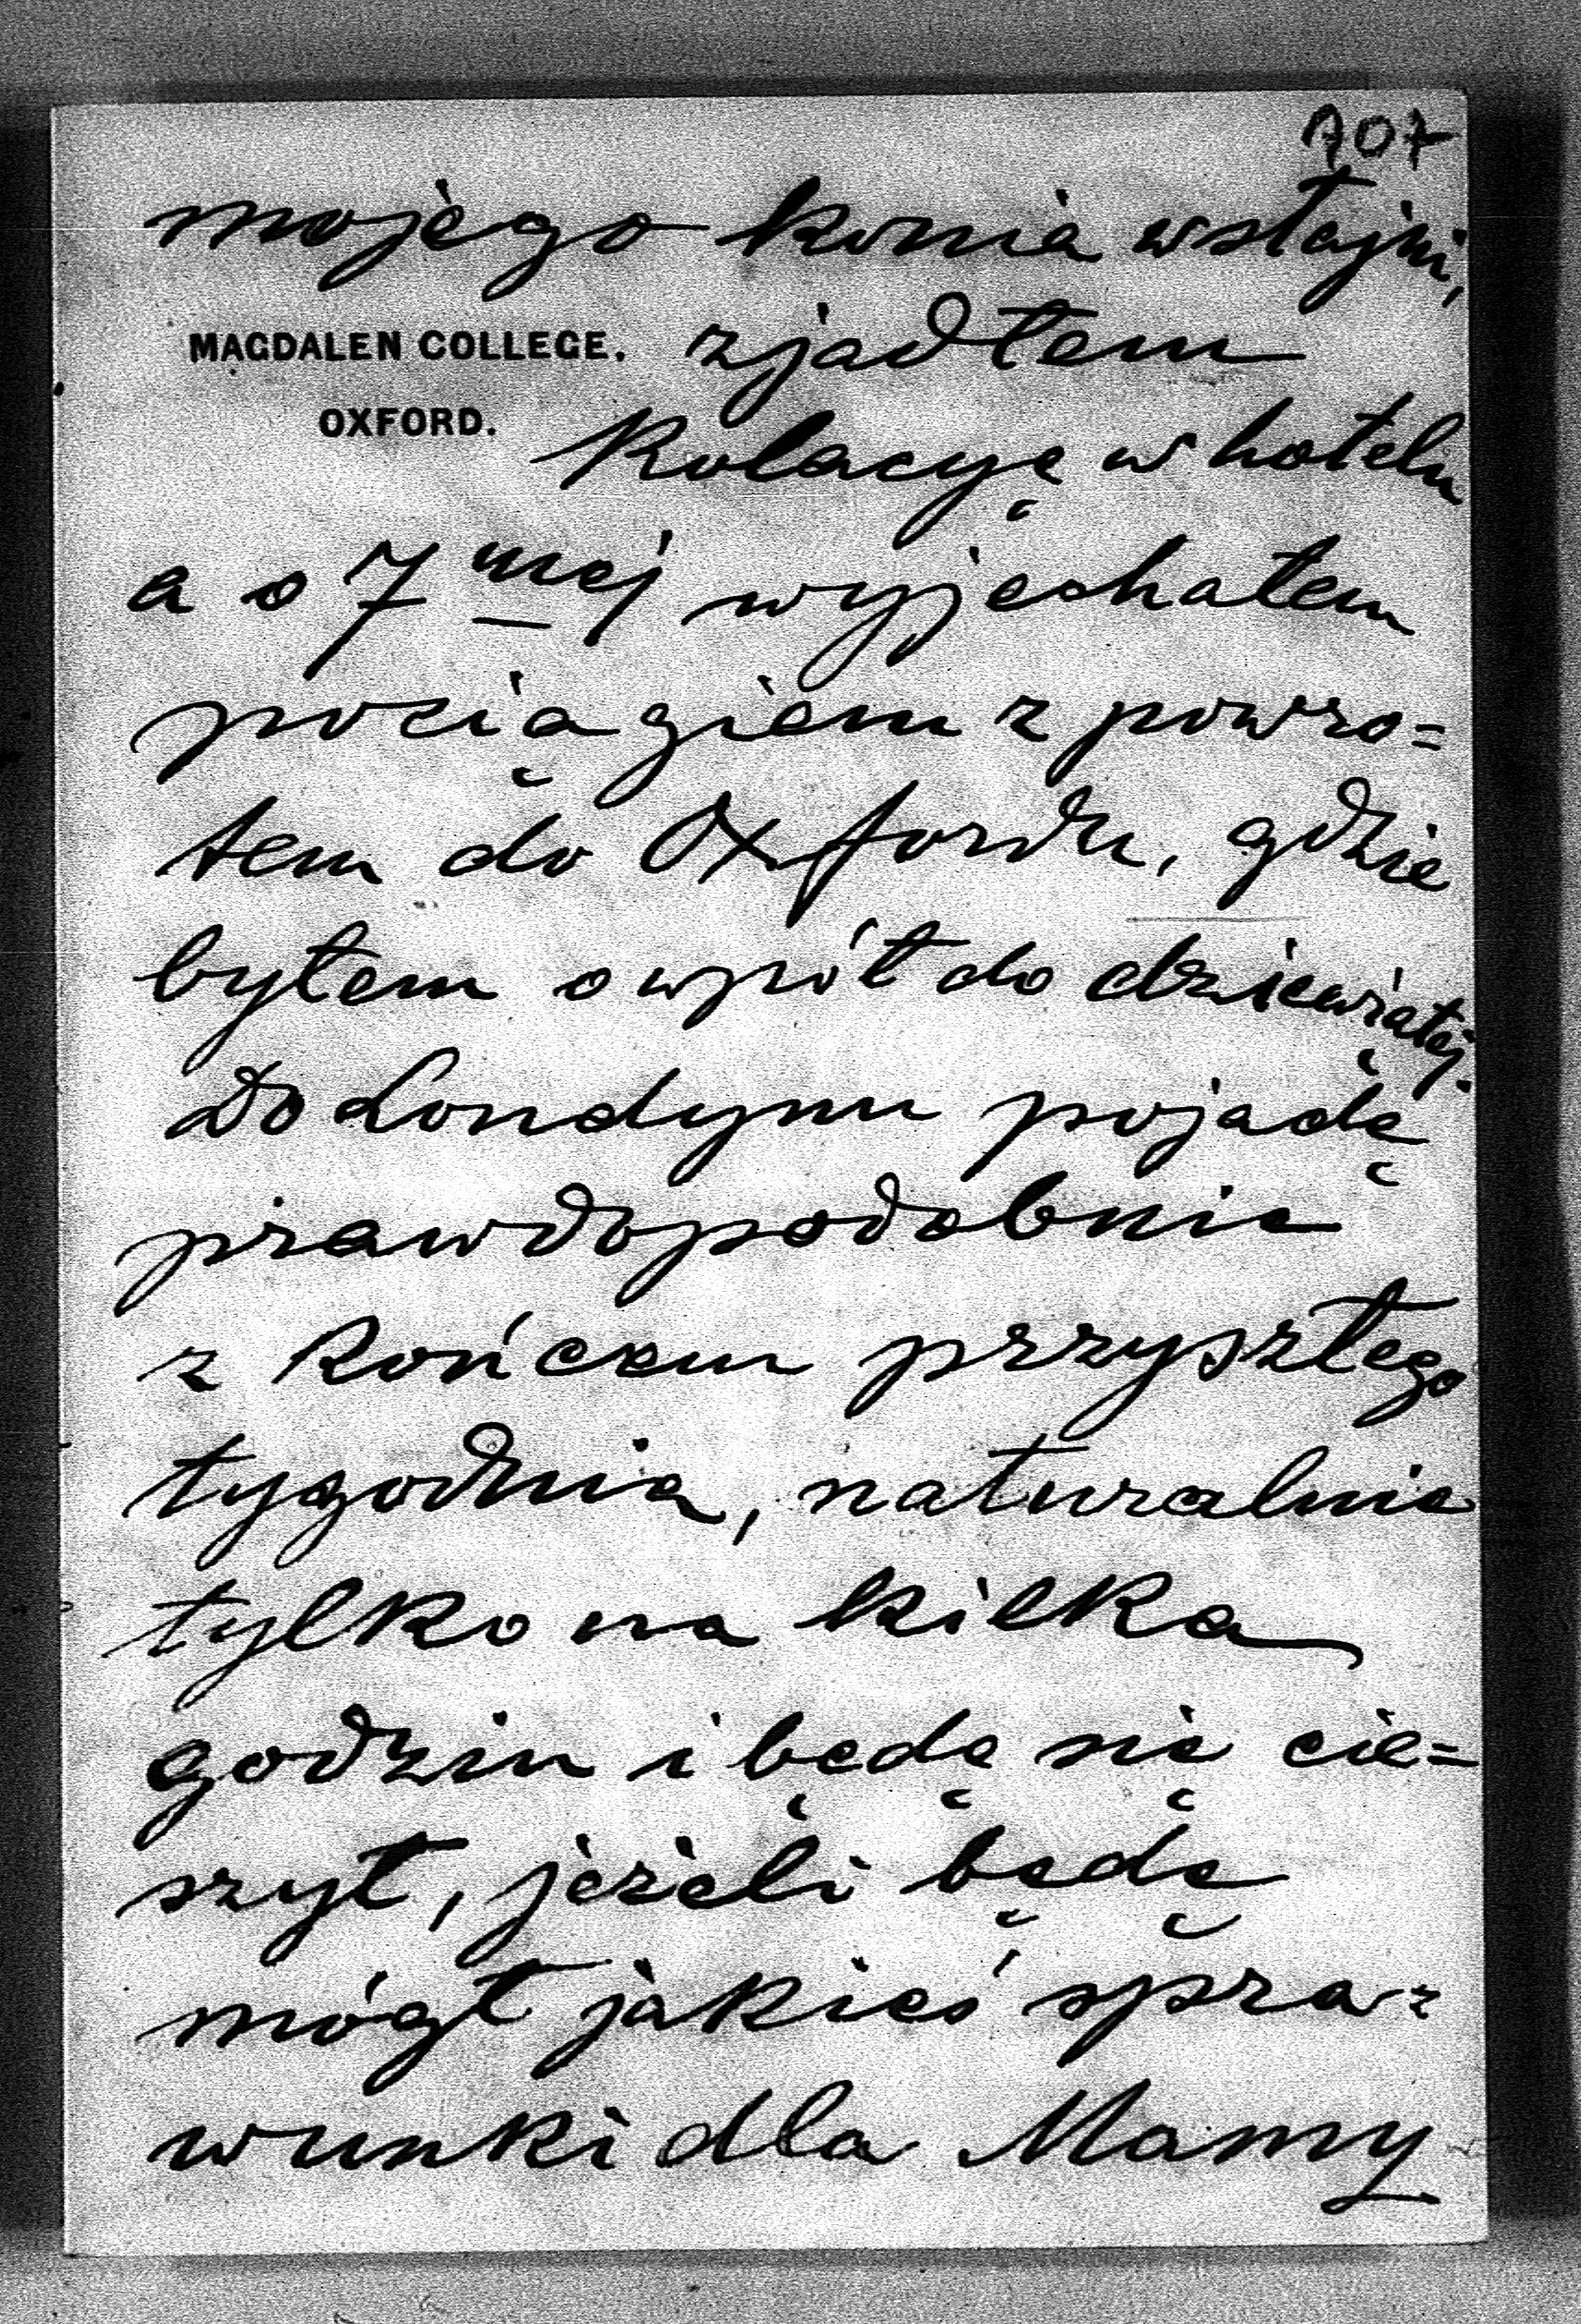 707
mojego konia w stajni,
MAGDALEN COLLEGE. zjadłem
OXFORD. kolacyę w hotelu
a o 7 mej wyjechałem
pociągiem z powro=
tem do Oxfordu, gdzie
byłem o wpół do dziewiątej.
Do Londynu pojadę
prawdopodobnie
z końcem przyszłego
tygodnia, naturalnie
tylko na kilka
godzin i będę się cie=
szył, jeżeli będę
mógł jakieś spra=
wunki dla Mamy